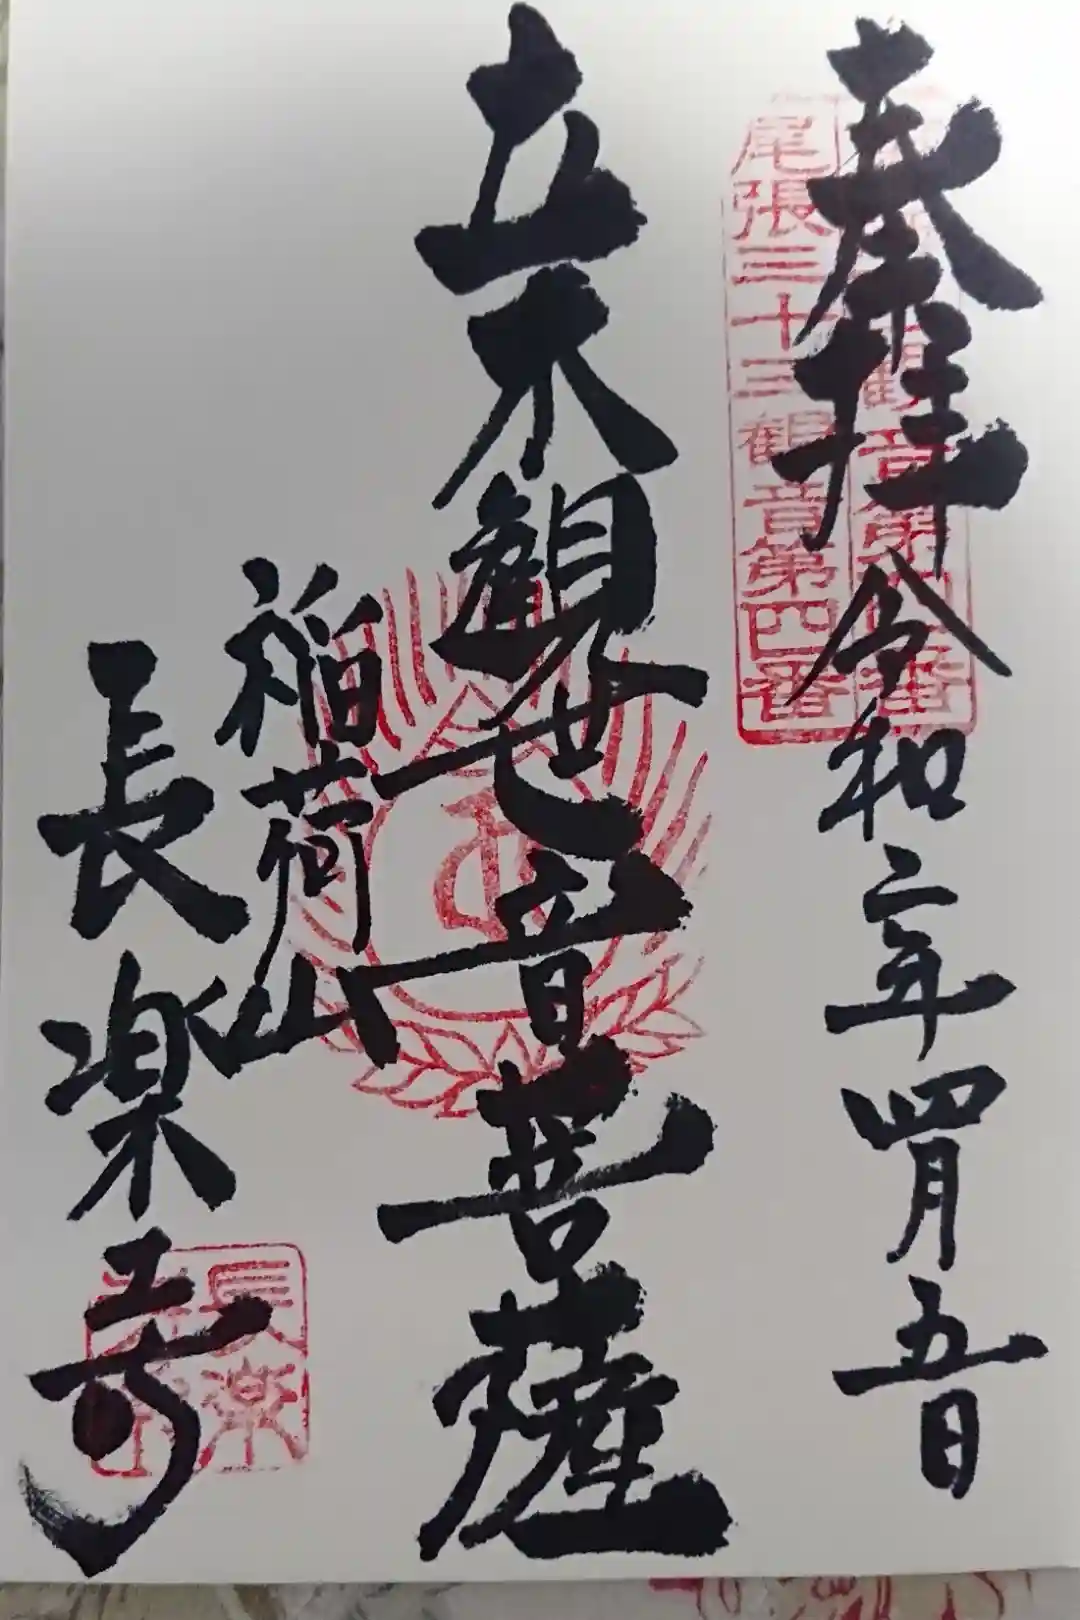 奉拝 令和二年四月五日
尾張三十三観音第四番
立木観世音菩薩
稲荷山
長楽寺
長楽